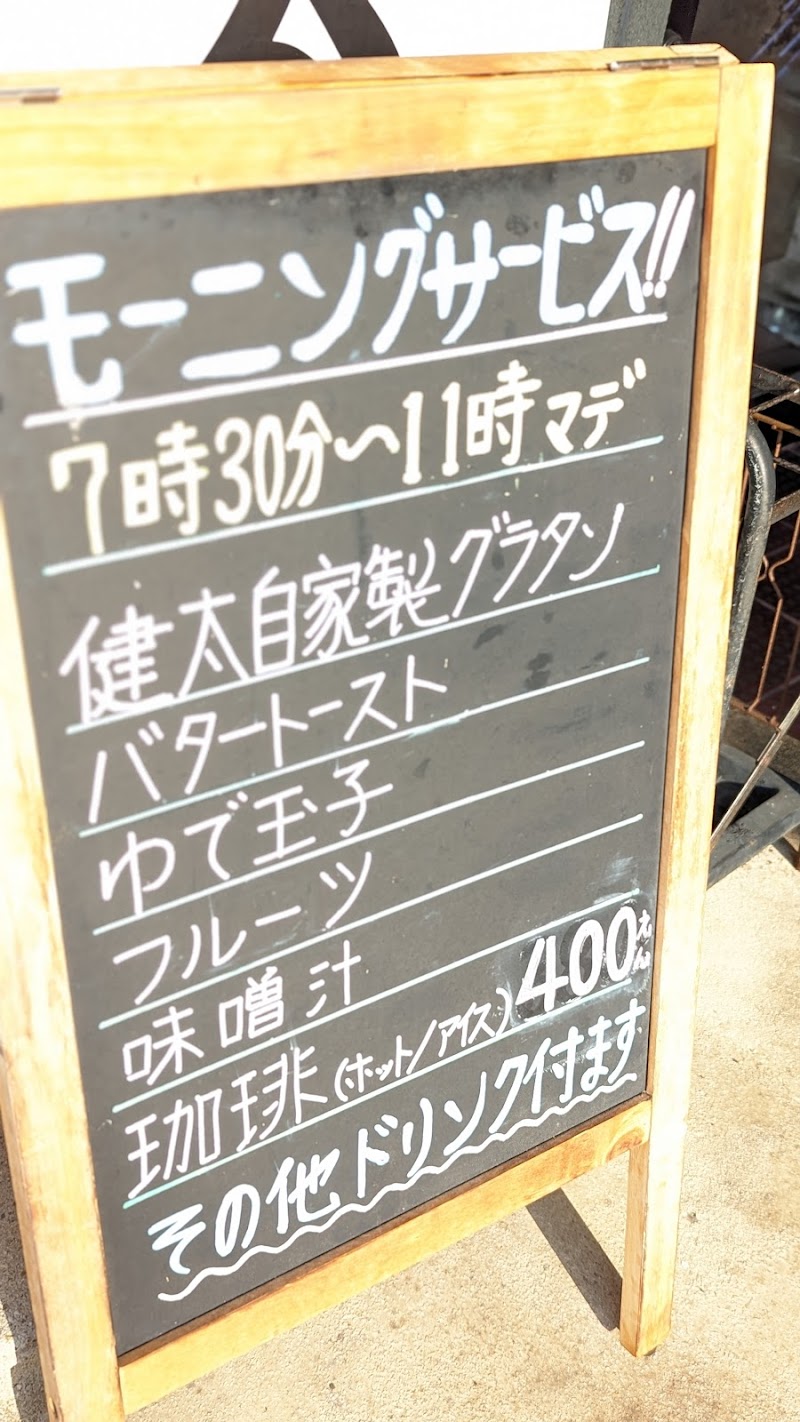 モーニングサービス!!
7時30分〜11時マデ
健太自家製グラタン
バタートースト
ゆで玉子
フルーツ
味噌汁
珈琲(ホット/アイス)400えん
その他ドリンク付ます